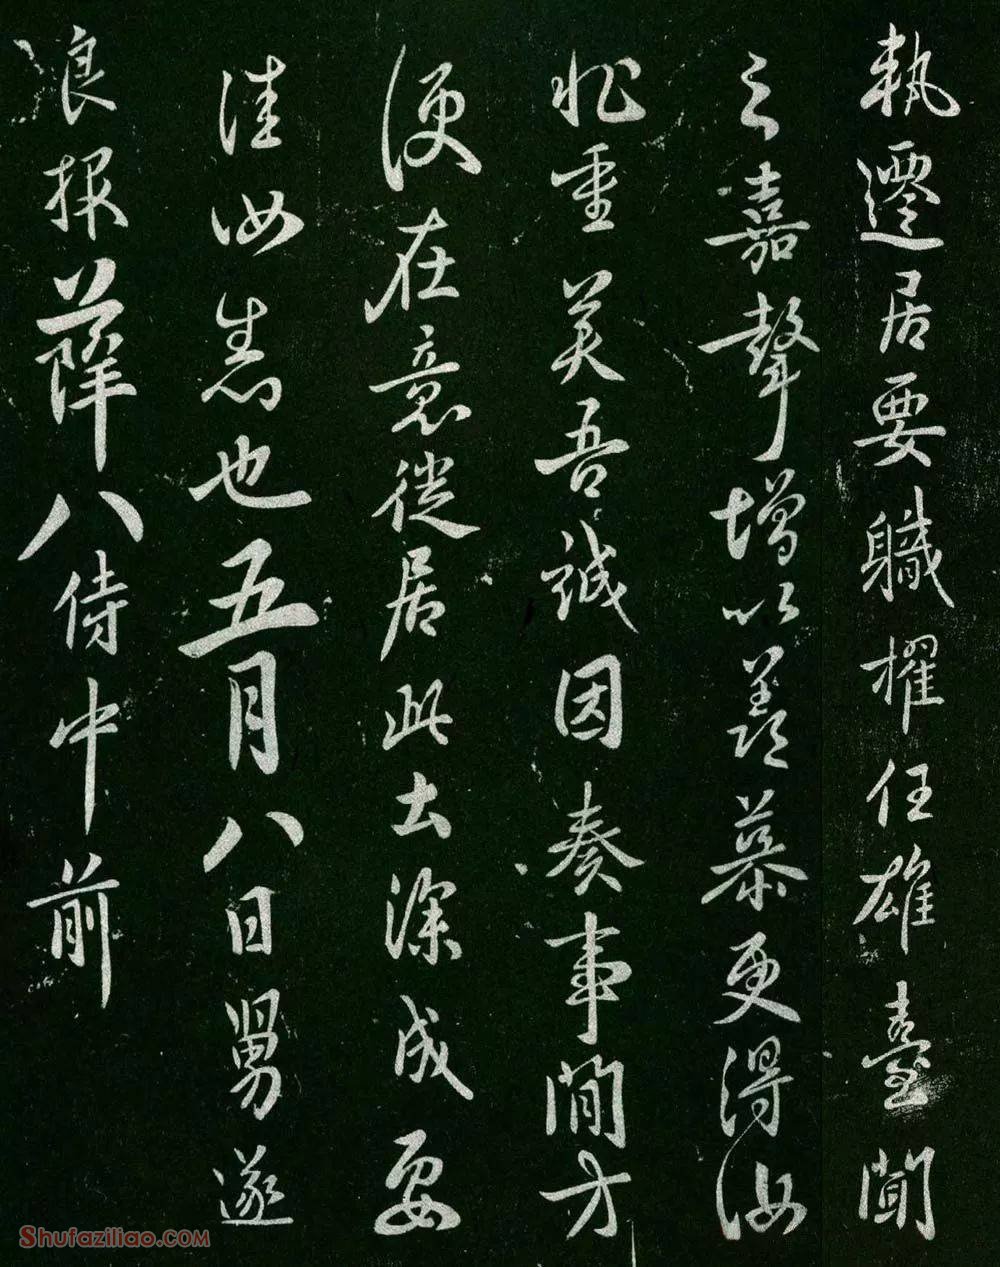 執遷居要職擢任雄臺聞
之嘉聲增以羨慕更得汝
非重美吾誠因奏事簡方
便在意徙居此土深成要
佳汝悉也五月八日舅遂
良報薛八侍中前
Shufaziliao.com